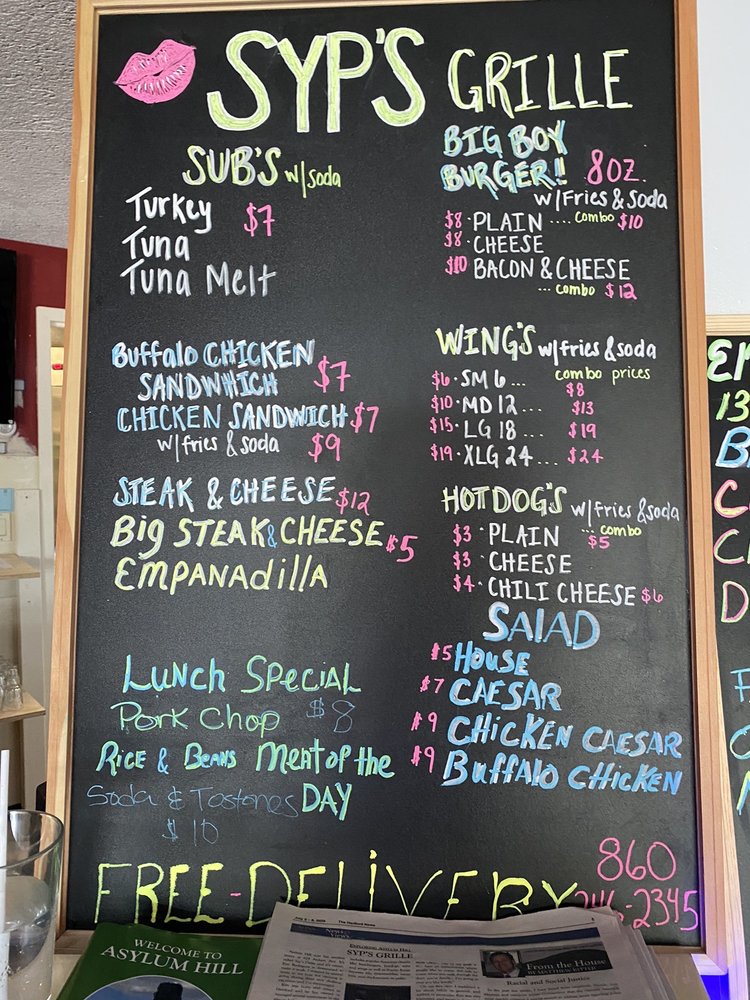 SYP'S GRILLE
SUB'S w/soda
Turkey $7
Tuna
Tuna Melt
Buffalo CHICKEN
SANDWHICH $7
CHICKEN SANDWICH $7
w/fries & soda $9
STEAK & CHEESE $12
Big STEAK & CHEESE $5
EMPANAdillA
Lunch Special
Pork Chop $8
Rice & Beans Meat of the
Soda & Tostones DAY
$10
BIG BOY
BURGER!! 8OZ.
w/Fries & Soda
$8 · PLAIN .... combo $10
$8 · CHEESE
$10 BACON & CHEESE
... combo $12
WING'S w/fries & soda
combo prices
$6 · SM 6 ... $8
$10 · MD 12 ... $13
$15 · LG 18 ... $19
$19 · XLG 24 .... $24
HOTDOG'S w/fries & soda
$3 · PLAIN ... combo $5
$3 · CHEESE
$4 · CHILI CHEESE $6
SALAD
$5 HOUSE
$7 CAESAR
$9 CHICKEN CAESAR
$9 Buffalo CHICKEN
FREE-DELIVERY
860
246-2345
WELCOME TO
ASYLUM HILL
The Hartford News
News &
Views
EXPLORING ASYLUM HILL
SYP'S GRILLE
From the House
BY MATTHEW RITTER
Racial and Social Justice